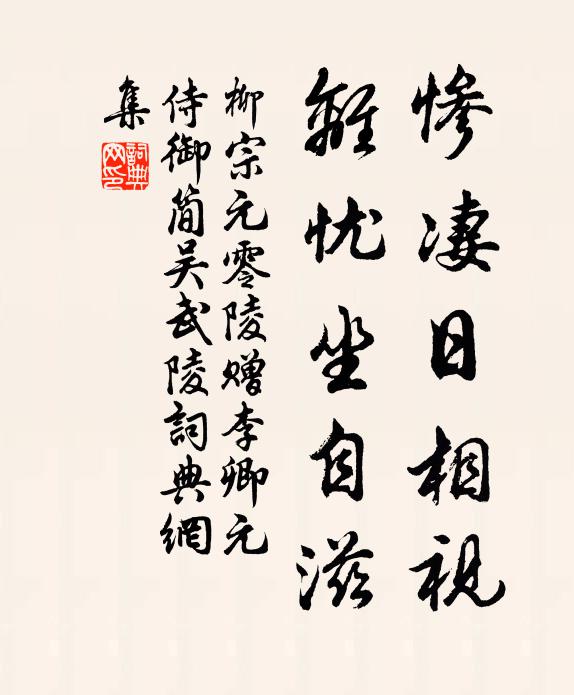 惨凄日相视
離忧坐自滋
柳宗元零陵赠李卿元
侍御简吴武陵詞典網
集
詞典網印